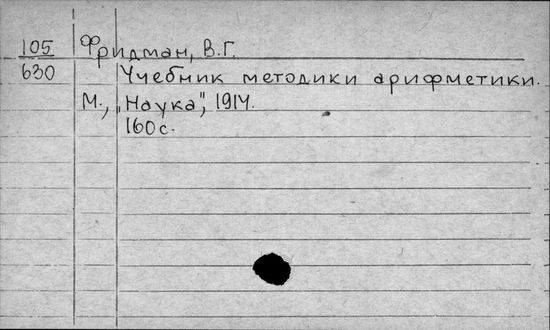 105 Фридман, В.Г.
630 Учебник методики арифметики.
М., "Наука", 1914.
160с.